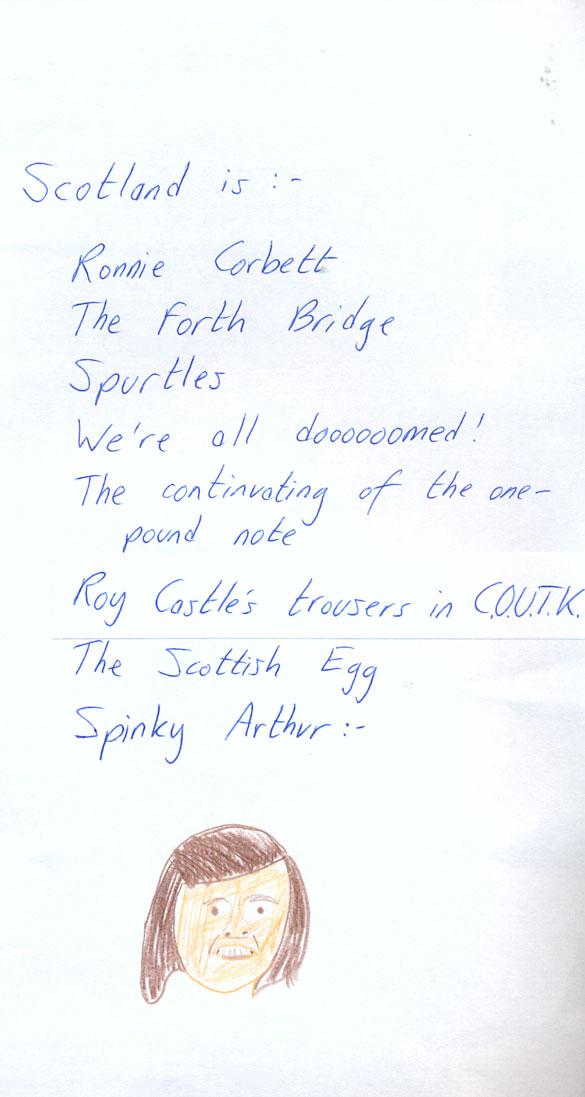 Scotland is :-
Ronnie Corbett
The Forth Bridge
Spurtles
We're all doooooomed!
The continuating of the one-
pound note
Roy Castle's trousers in C.O.U.T.K.
The Scottish Egg
Spinky Arthur :-